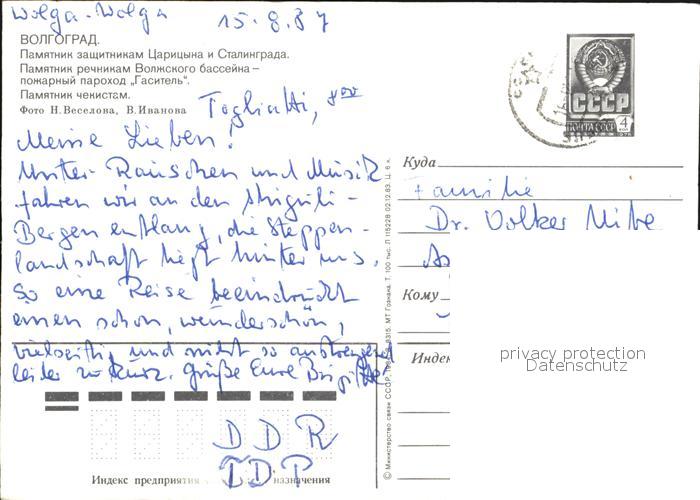 Wolga-Wolga 15.8.87
ВОЛГОГРАД.
Памятник защитникам Царицына и Сталинграда.
Памятник речникам Волжского бассейна –
пожарный пароход „Гаситель".
Памятник чекистам.
Фото Н. Веселова, В. Иванова
Togliatti, 8⁰⁰
Meine Lieben!
Unter Rauschen und Musik
fahren wir an den Shiguli-
Bergen entlang, die Steppen-
landschaft liegt hinter uns.
So eine Reise beeindruckt
einen schon, wunderschön,
vielseitig und nicht so anstrengend
leider zu kurz. Grüße Eure Birgit
DDR
ГДР
Индекс предприятия
назначения
© Министерство связи СССР,
8315. МТ Гознака. Т. 100 тыс. Л 115228 02.12.83. Ц. 6 к.
СССР
ПОЧТА СССР 4 КОП
Куда
Familie
Dr. Volker
Кому
Индек
privacy protection
Datenschutz